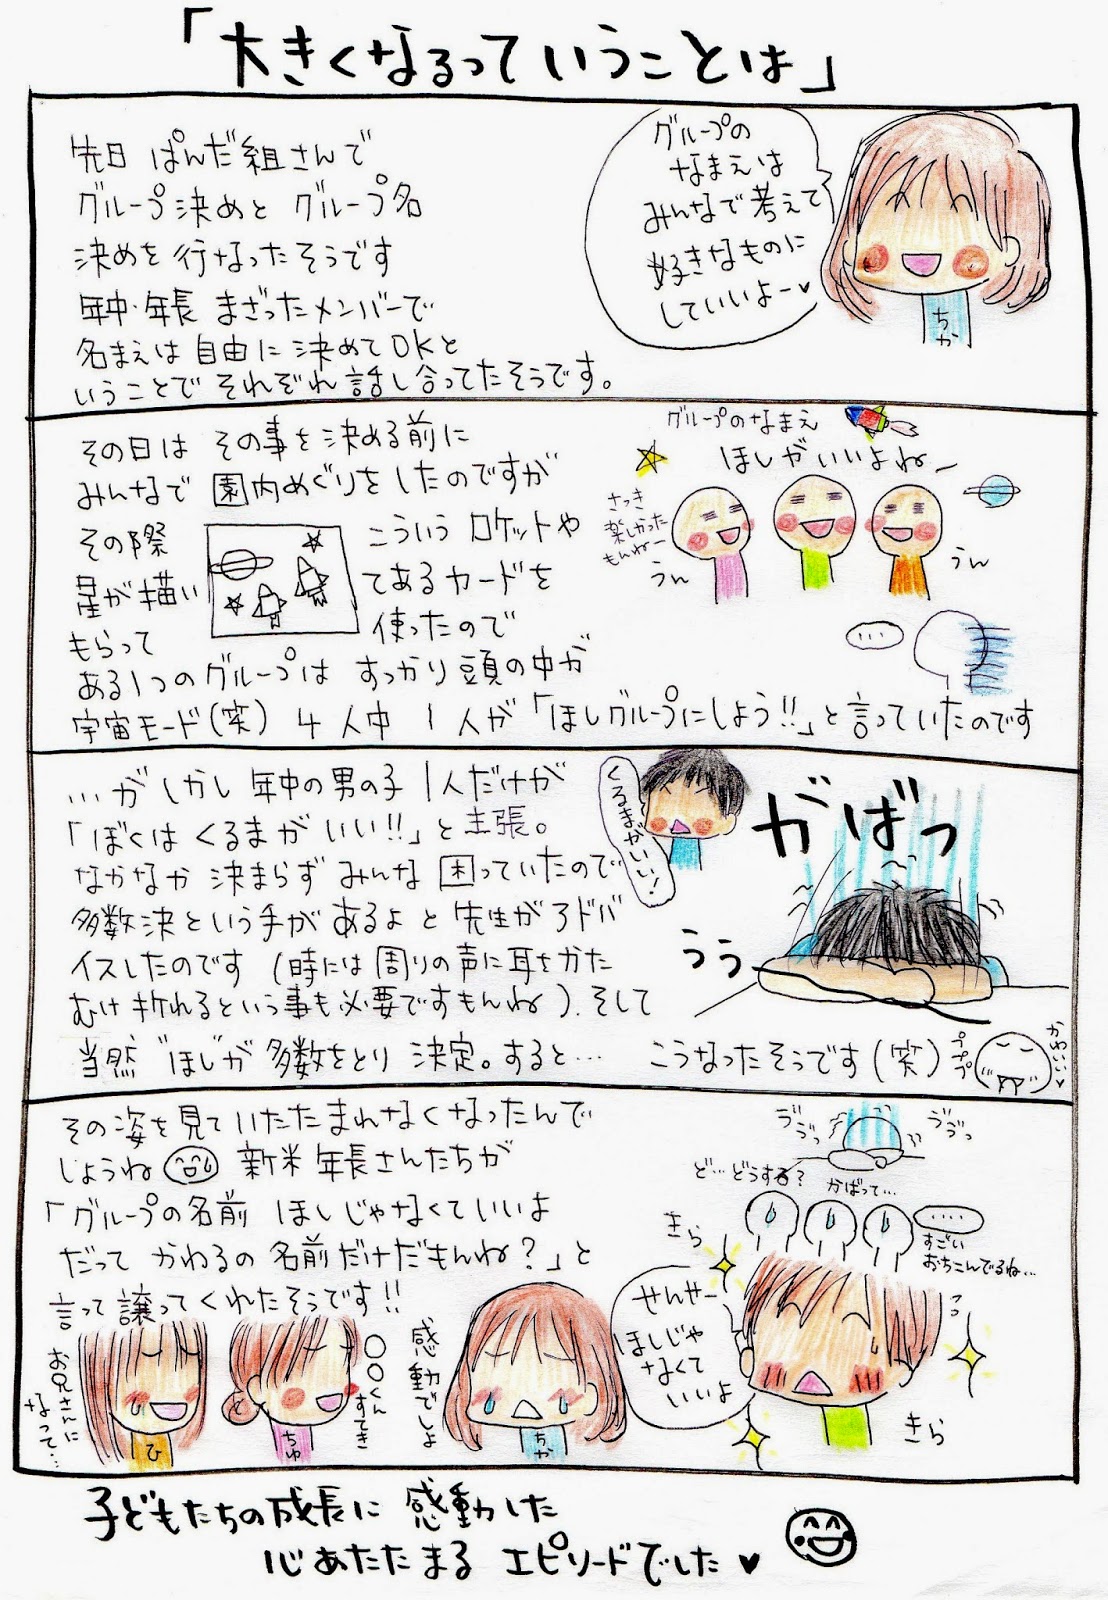 「大きくなるっていうことは」
先日 ぱんだ組さんで
グループ決めと グループ名
決めを行なったそうです
年中・年長 まざったメンバーで
名まえは 自由に 決めて OKと
いうことで それぞれ 話し合ってたそうです。
グループの
なまえは
みんなで考えて
好きなものに
していいよー♥
ちか
その日は その事を 決める前に
みんなで 園内めぐりをしたのですが
その際
こういう ロケットや
星が描い
てあるカードを
もらって
使ったので
ある1つのグループは すっかり頭の中が
宇宙モード(笑) 4人中 1人が「ほしグループにしよう!!」と言っていたのです
グループのなまえ
ほしがいいよねー
さっき
楽しかった
もんねー
うん
うん
...
...がしかし 年中の男の子 1人だけが
「ぼくは くるまがいい!!」と主張。
なかなか 決まらず みんな 困っていたので
多数決という手が あるよ と 先生がアドバ
イスしたのです (時には 周りの声に耳をかた
むけ 折れるという事も必要ですもんね). そして
当然 "ほし"が 多数をとり 決定。すると… こうなったそうです(笑)
くるまがいい!
がばっ
うぅ
ププププ
かわいい♥
その姿を見て いたたまれなくなったんで
しょうね 新米 年長さんたちが
「グループの名前 ほしじゃなくていいよ
だって かわるの 名前だけだもんね?」と
言って 譲ってくれたそうです!!
ゔゔっ
ゔゔっ
ど…どうする?
がばって…
....
すごい
おちこんでるね…
きら
せんせー
ほしじゃ
なくて
いいよ
きら
お兄さんに
なって…
ひ
〇〇くん
すてき
ちゆ
感動でしょ
ちか
子どもたちの成長に 感動した
心あたたまる エピソードでした♥